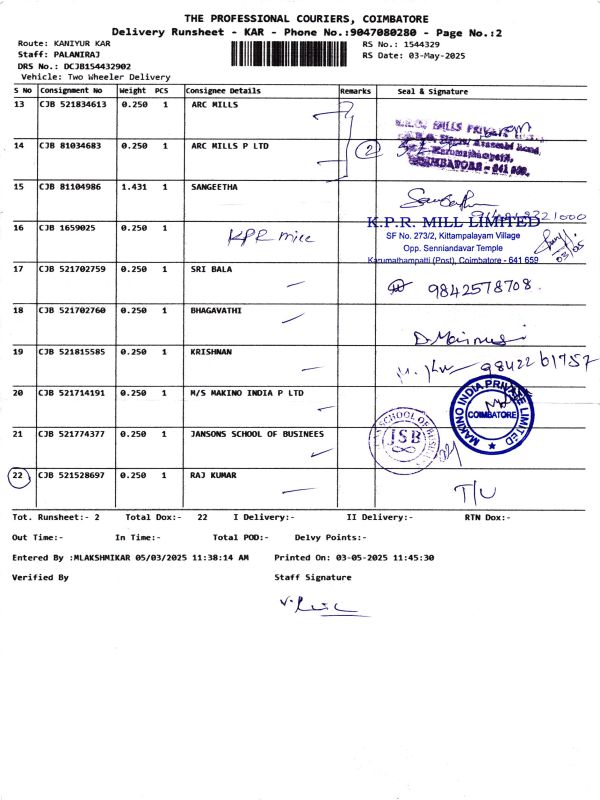 THE PROFESSIONAL COURIERS, COIMBATORE
Delivery Runsheet - KAR - Phone No.:9047080280 - Page No.:2
Route: KANIYUR KAR
RS No.: 1544329
Staff: PALANIRAJ
RS Date: 03-May-2025
DRS No.: DCJB154432902
Vehicle: Two Wheeler Delivery
S No Consignment No Weight PCS Consignee Details Remarks Seal & Signature
13 CJB 521834613 0.250 1 ARC MILLS
14 CJB 81034683 0.250 1 ARC MILLS P LTD 2
15 CJB 81104986 1.431 1 SANGEETHA
16 CJB 1659025 0.250 1 KPR mill
K.P.R. MILL LIMITED
SF No. 273/2, Kittampalayam Village
Opp. Senniandavar Temple
Karumathampatti (Post), Coimbatore - 641 659
03/05
17 CJB 521702759 0.250 1 SRI BALA 9842578708
18 CJB 521702760 0.250 1 BHAGAVATHI
19 CJB 521815585 0.250 1 KRISHNAN 9842261757
20 CJB 521714191 0.250 1 M/S MAKINO INDIA P LTD
MAKINO INDIA PRIVATE LIMITED
COIMBATORE
21 CJB 521774377 0.250 1 JANSONS SCHOOL OF BUSINEES
JSB
22 CJB 521528697 0.250 1 RAJ KUMAR T/U
Tot. Runsheet:- 2 Total Dox:- 22 I Delivery:- II Delivery:- RTN Dox:-
Out Time:- In Time:- Total POD:- Delvy Points:-
Entered By :MLAKSHMIKAR 05/03/2025 11:38:14 AM Printed On: 03-05-2025 11:45:30
Verified By Staff Signature